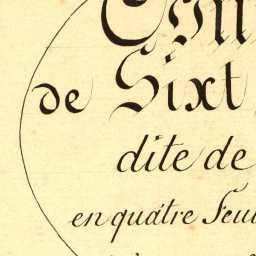 de Sixt
dite de
en quátre Feui